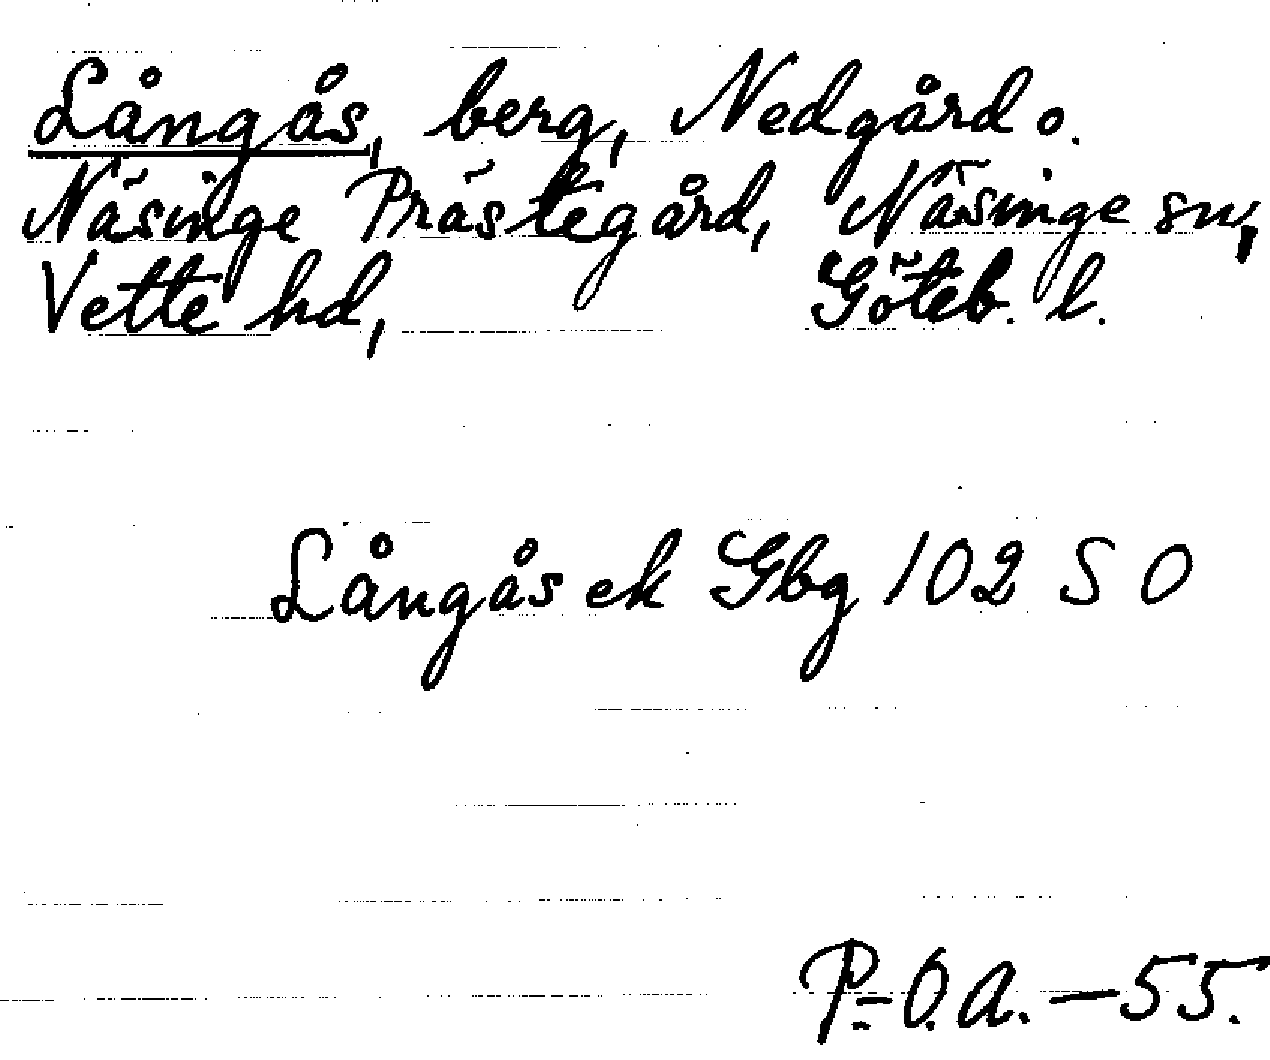 Långås, berg, Nedgård o.
Näsinge Prästegård, Näsinge sn,
Vette hd, Göteb. l.
Långås ek Gbg 102 S O
P.-O.A. - 55.